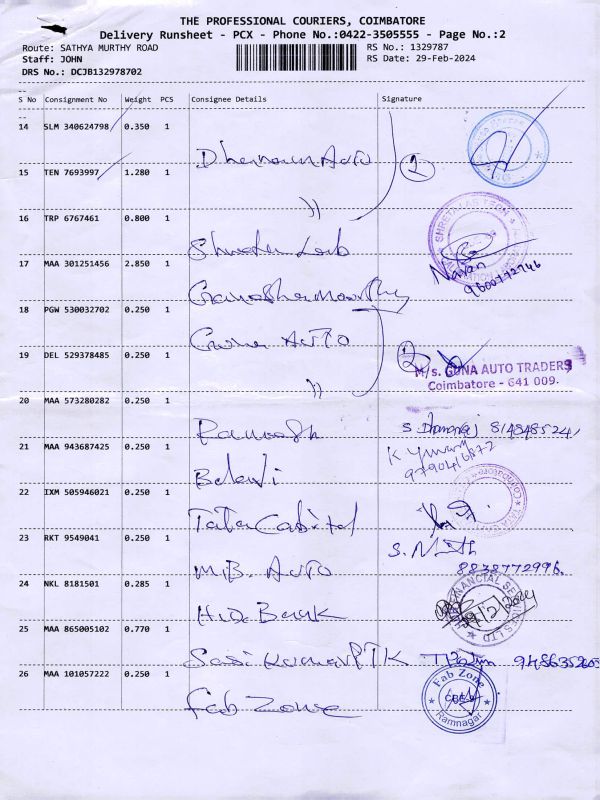 THE PROFESSIONAL COURIERS, COIMBATORE
Delivery Runsheet - PCX - Phone No.:0422-3505555 - Page No.:2
Route: SATHYA MURTHY ROAD RS No.: 1329787
Staff: JOHN RS Date: 29-Feb-2024
DRS No.: DCJB132978702
S No Consignment No Weight PCS Consignee Details Signature
14 SLM 340624798 0.350 1
Auto 2
15 TEN 7693997 1.280 1
16 TRP 6767461 0.800 1
SHRETA LAB TECH
17 MAA 301251456 2.850 1
Navan
9600772746
18 PGW 530032702 0.250 1
Guna Auto
19 DEL 529378485 0.250 1
2
M/s. GUNA AUTO TRADERS
Coimbatore - 641 009.
20 MAA 573280282 0.250 1
Ramesh
21 MAA 943687425 0.250 1
K
Balaji
22 IXM 505946021 0.250 1
Tata Capital
23 RKT 9549041 0.250 1
8838772996
M.B. Auto
24 NKL 8181501 0.285 1
FINANCIAL SERVICES LTD
Bank
25 MAA 865005102 0.770 1
Sasi Kumar P T K
26 MAA 101057222 0.250 1
Fab Zone
CBE-9
Ramnagar
Fab Zone